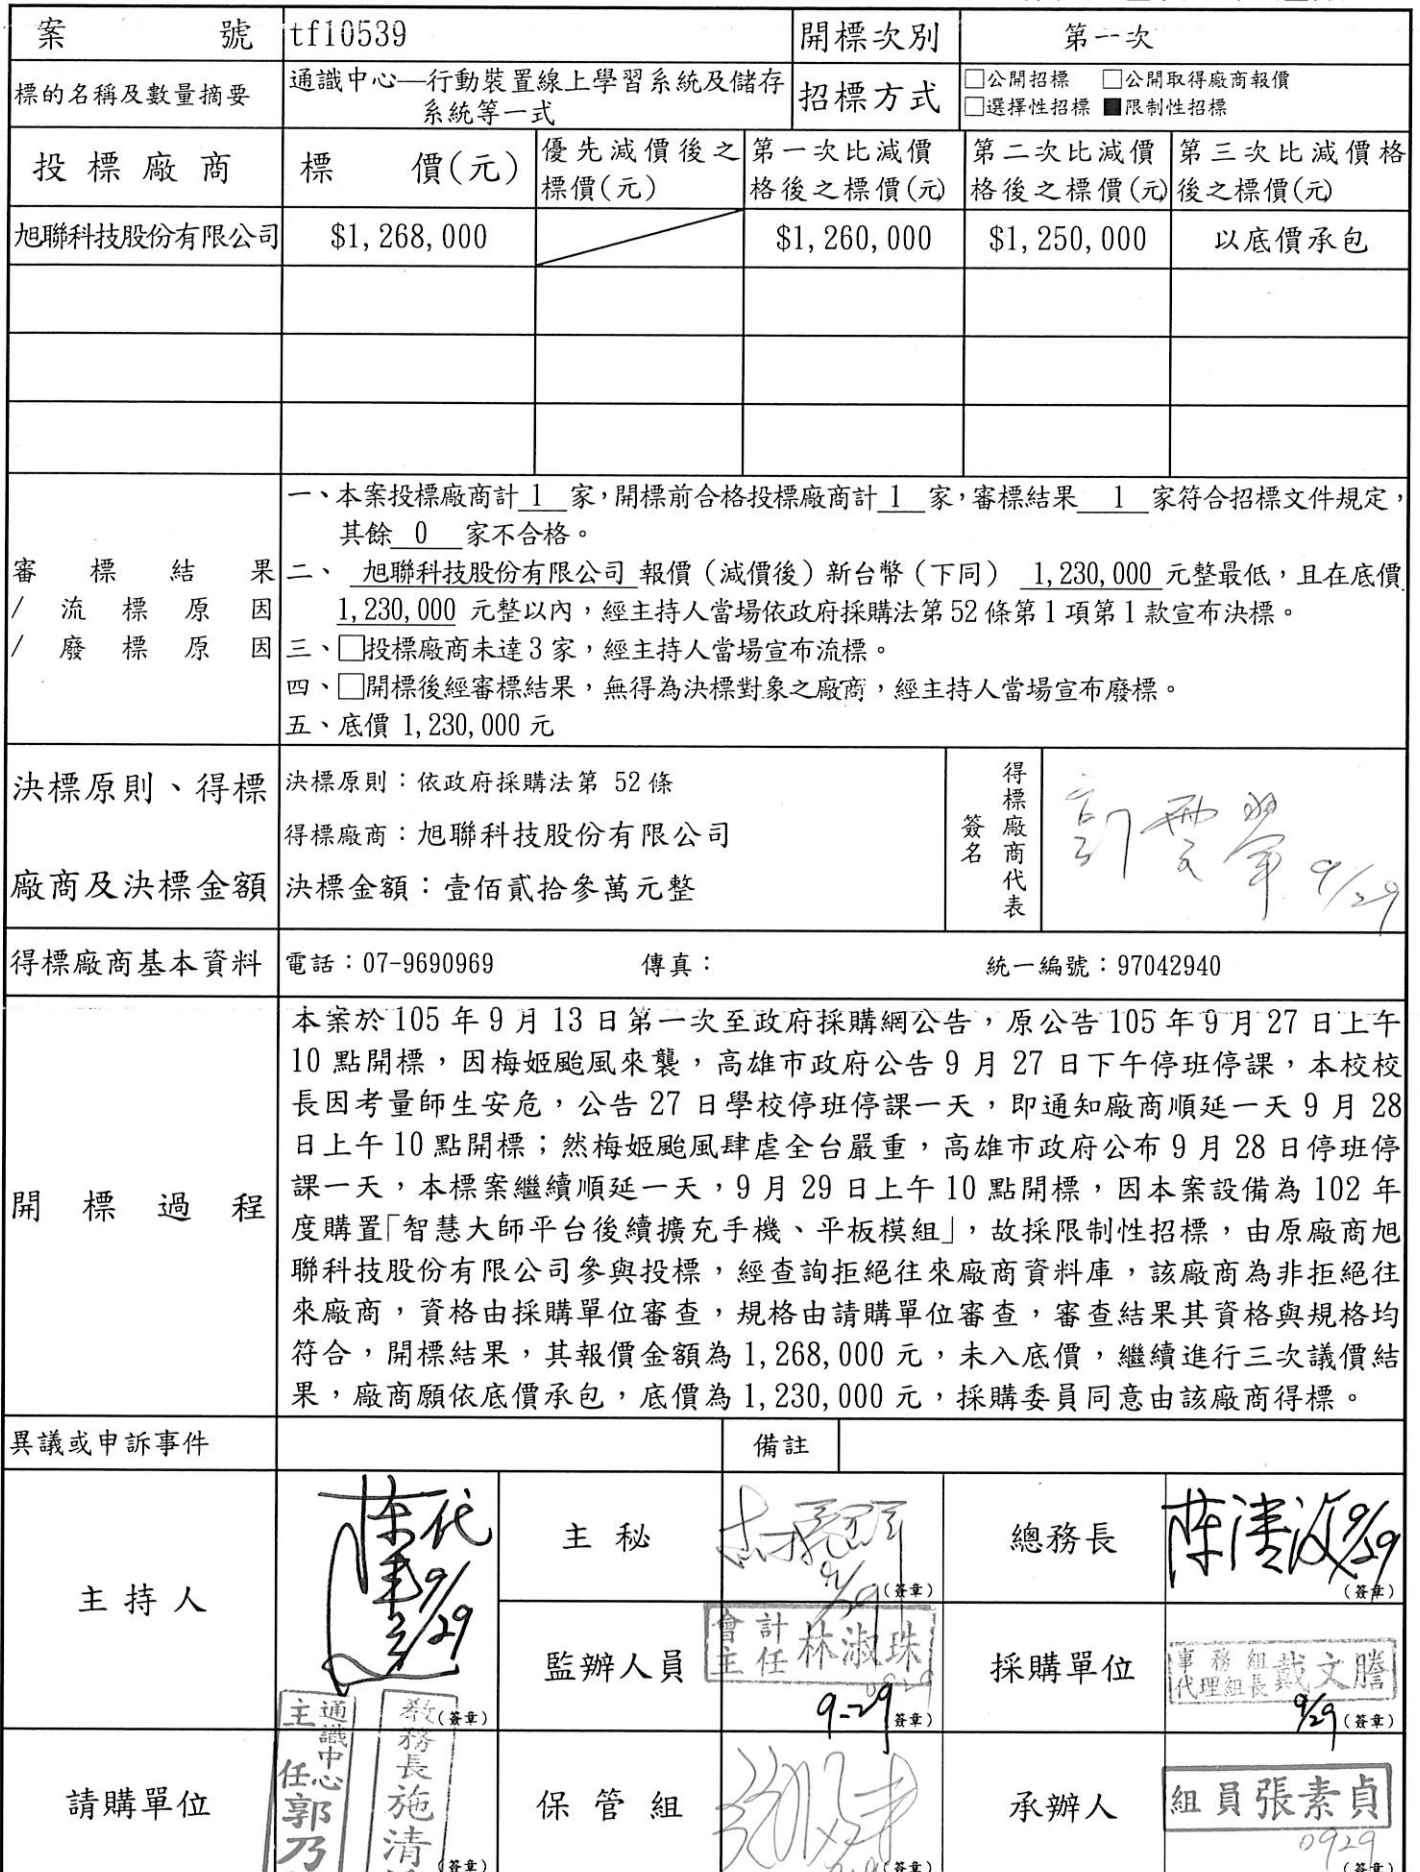 案 號 tf10539 開標次別 第一次
標的名稱及數量摘要 通識中心—行動裝置線上學習系統及儲存系統等一式 招標方式 □公開招標 □公開取得廠商報價
□選擇性招標 ■限制性招標
投標廠商 標 價(元) 優先減價後之標價(元) 第一次比減價格後之標價(元) 第二次比減價格後之標價(元) 第三次比減價格後之標價(元)
旭聯科技股份有限公司 $1,268,000 $1,260,000 $1,250,000 以底價承包
審標結果
/流標原因
/廢標原因
一、本案投標廠商計 1 家,開標前合格投標廠商計 1 家,審標結果 1 家符合招標文件規定,
其餘 0 家不合格。
二、 旭聯科技股份有限公司 報價(減價後)新台幣(下同) 1,230,000 元整最低,且在底價
1,230,000 元整以內,經主持人當場依政府採購法第52條第1項第1款宣布決標。
三、□投標廠商未達3家,經主持人當場宣布流標。
四、□開標後經審標結果,無得為決標對象之廠商,經主持人當場宣布廢標。
五、底價 1,230,000 元
決標原則、得標
廠商及決標金額
決標原則:依政府採購法第 52條
得標廠商:旭聯科技股份有限公司
決標金額:壹佰貳拾參萬元整
得標廠商代表
簽名
9/29
得標廠商基本資料 電話:07-9690969 傳真: 統一編號:97042940
開標過程
本案於105年9月13日第一次至政府採購網公告,原公告105年9月27日上午
10點開標,因梅姬颱風來襲,高雄市政府公告9月27日下午停班停課,本校校
長因考量師生安危,公告27日學校停班停課一天,即通知廠商順延一天9月28
日上午10點開標;然梅姬颱風肆虐全台嚴重,高雄市政府公布9月28日停班停
課一天,本標案繼續順延一天,9月29日上午10點開標,因本案設備為102年
度購置「智慧大師平台後續擴充手機、平板模組」,故採限制性招標,由原廠商旭
聯科技股份有限公司參與投標,經查詢拒絕往來廠商資料庫,該廠商為非拒絕往
來廠商,資格由採購單位審查,規格由請購單位審查,審查結果其資格與規格均
符合,開標結果,其報價金額為1,268,000元,未入底價,繼續進行三次議價結
果,廠商願依底價承包,底價為1,230,000元,採購委員同意由該廠商得標。
異議或申訴事件 備註
主持人 9/29 (簽章)
主秘 9/29 (簽章)
總務長 9/29 (簽章)
監辦人員 會計主任 林淑珠 0929 9-29 (簽章)
採購單位 事務組代理組長 戴文謄 9/29 (簽章)
請購單位 通識中心主任 郭乃 教務長 施清 (簽章)
保管組 (簽章)
承辦人 組員 張素貞 0929 (簽章)